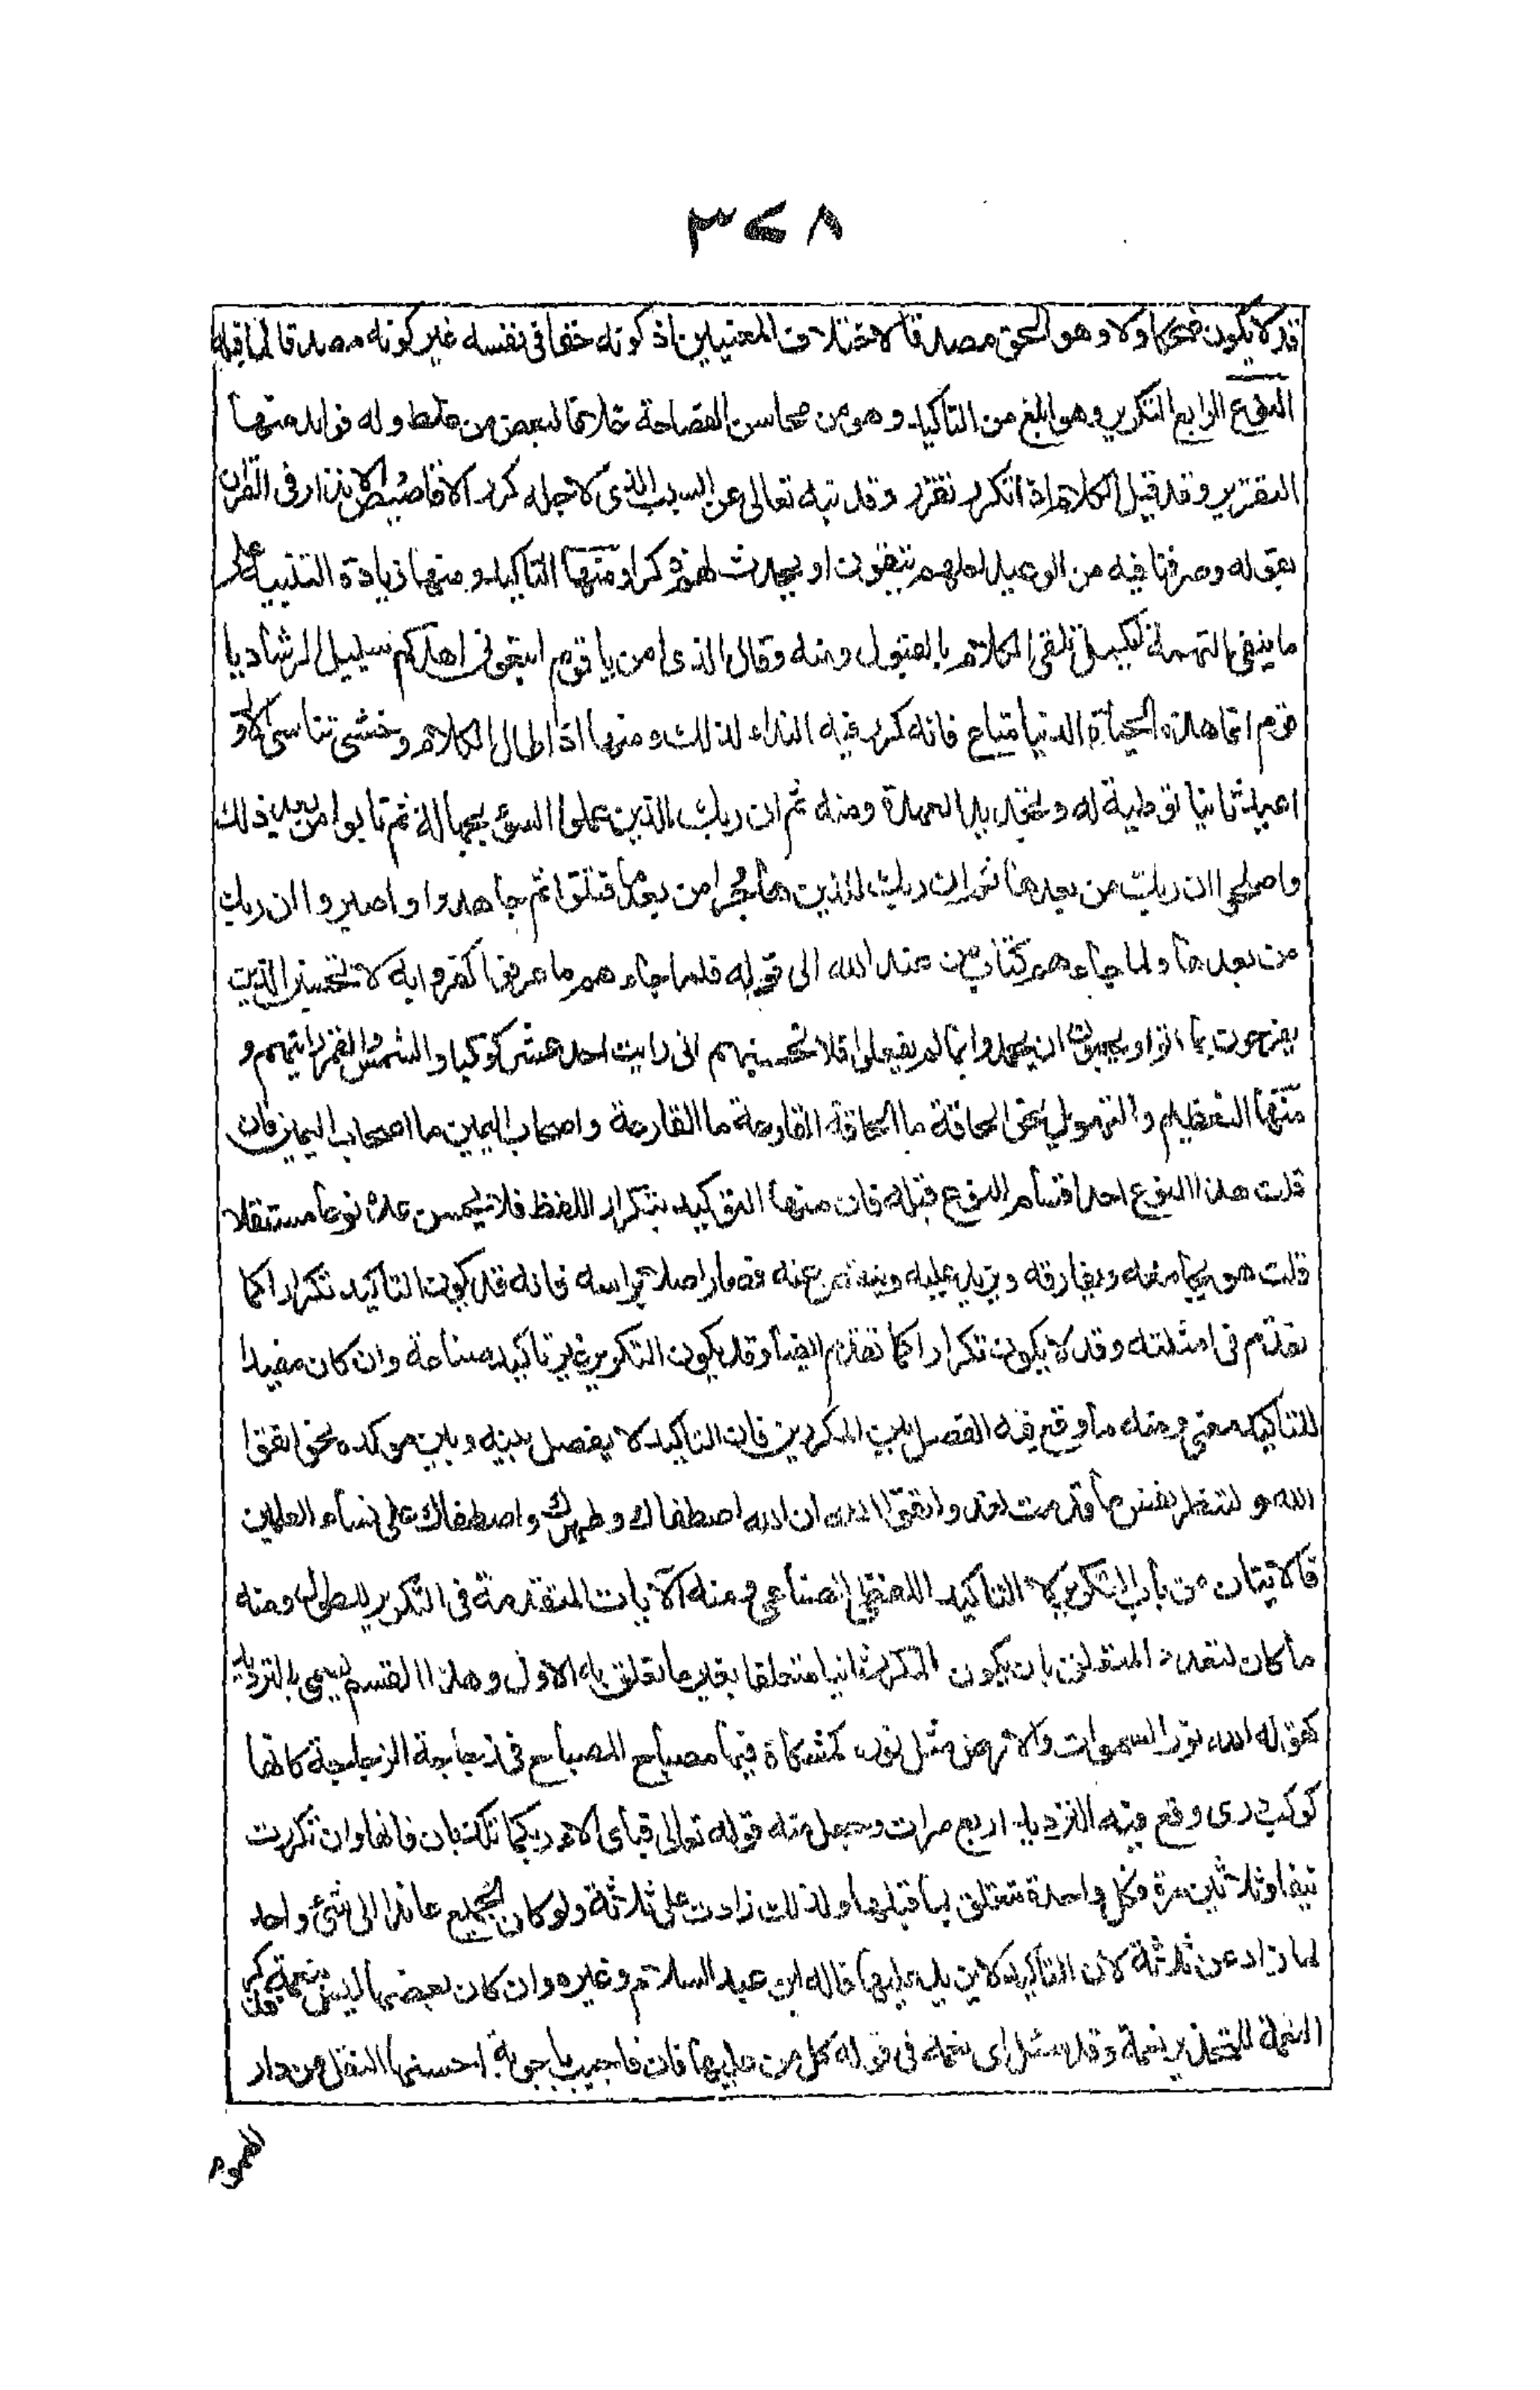 ٣٧٨
قد لا يكون ضحكا ولا وهو الحق مصدقا لاختلاف المعنيين اذ كونه حقا فى نفسه غير كونه مصدقا لما قبله
النوع الرابع التكرير وهو ابلغ من التاكيد وهو من محاسن الفصاحة خلافا لبعض من غلط وله فوايد منها
التقرير وقد قيل الكلام اذا تكرر تقرر وقد نبه تعالى عن السبب الذى لاجله كرر الاقاصيص والانذار فى القران
بقوله وصرفنا فيه من الوعيد لعلهم يتقون او يحدث لهم ذكرا ومنها التاكيد ومنها زيادة التنبيه على
ما ينفى التهمة ليكمل تلقى الكلام بالقبول ومنه وقال الذى امن يا قوم اتبعونى اهدكم سبيل الرشاد يا
قوم انما هذه الحياة الدنيا متاع فانه كرر فيه النداء لذلك ومنها اذا طال الكلام وخشى تناسى الاول
اعيد ثانيا تطرية له وتجديدا لعهده ومنه ثم ان ربك للذين عملوا السوء بجهالة ثم تابوا من بعد ذلك
واصلحوا ان ربك من بعدها ثم ان ربك للذين هاجروا من بعد ما فتنوا ثم جاهدوا واصبروا ان ربك
من بعدها ولما جاءهم كتاب من عند الله الى قوله فلما جاءهم ما عرفوا كفروا به لا تحسبن الذين
يفرحون بما اتوا ويحبون ان يحمدوا بما لم يفعلوا فلا تحسبنهم انى رايت احد عشر كوكبا والشمس والقمر رايتهم و
منها التعظيم والتهويل نحو الحاقة ما الحاقة القارعة ما القارعة واصحاب اليمين ما اصحاب اليمين فان
قلت هذا النوع احد اقسام النوع قبله فان منها التوكيد بتكرار اللفظ فلا يحسن عده نوعا مستقلا
قلت هو يجامعه ويفارقه ويزيد عليه وينقص عنه فصار اصلا براسه فانه قد يكون التاكيد تكرارا كما
تقدم فى امثلته وقد لا يكون تكرارا كما تقدم ايضا وقد يكون التكرير غير تاكيد صناعة وان كان مفيدا
للتاكيد معنى ومنه ما وقع فيه الفصل بين المكررين فان التاكيد لا يفصل بينه وبين موكده نحو اتقوا
الله ولتنظر نفس ما قدمت لغد واتقوا الله ان الله اصطفاك وطهرك واصطفاك على نساء العلمين
فالايتان من باب التكرير لا التاكيد اللفظى الصناعى ومنه الآيات المتقدمة فى التكرير للطول ومنه
ما كان لتعدد المتعلق بان يكون المكرر ثانيا متعلقا بغير ما تعلق به الاول وهذا القسم يسمى بالترديد
كقوله الله نور السموات والارض مثل نوره كمشكاة فيها مصباح المصباح فى زجاجة الزجاجة كانها
كوكب درى وقع فيه الترديد اربع مرات وجعل منه قوله تعالى فباى الاء ربكما تكذبان فانها وان تكررت
نيفا وثلاثين مرة فكل واحدة تتعلق بما قبلها ولذلك زادت على ثلاثة ولو كان الجميع عائدا الى شئ واحد
لما زاد عن ثلاثة لان التاكيد لا يزيد عليها قاله ابن عبد السلام وغيره وان كان بعضها ليس بنعمة فذكر
النقمة للتحذير نعمة وقد سئل اى نعمة فى قوله كل من عليها فان فاجيب باجوبة احسنها النقل من دار
الهموم